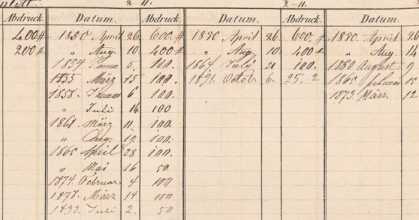 Abdruck. Datum. Abdruck. Datum. Abdruck. Datum.
400 1850 April 26 600 1850 April 26 600 1850 April 26
200 " Aug 10 400 " Aug 10 400 " Aug 14
1854 5 100 1864 July 21 100 1850 August 9
1855 März 15 100 1891 Octob 6 25. 2 1860 15
1858 6 100 1873 März 12
" Juli 16 100
1861 März 11 100
" Aug 12 100
1865 April 28 100
" Mai 16 50
1874 Februar 4 100
1877 März 14 100
Juli 2 50